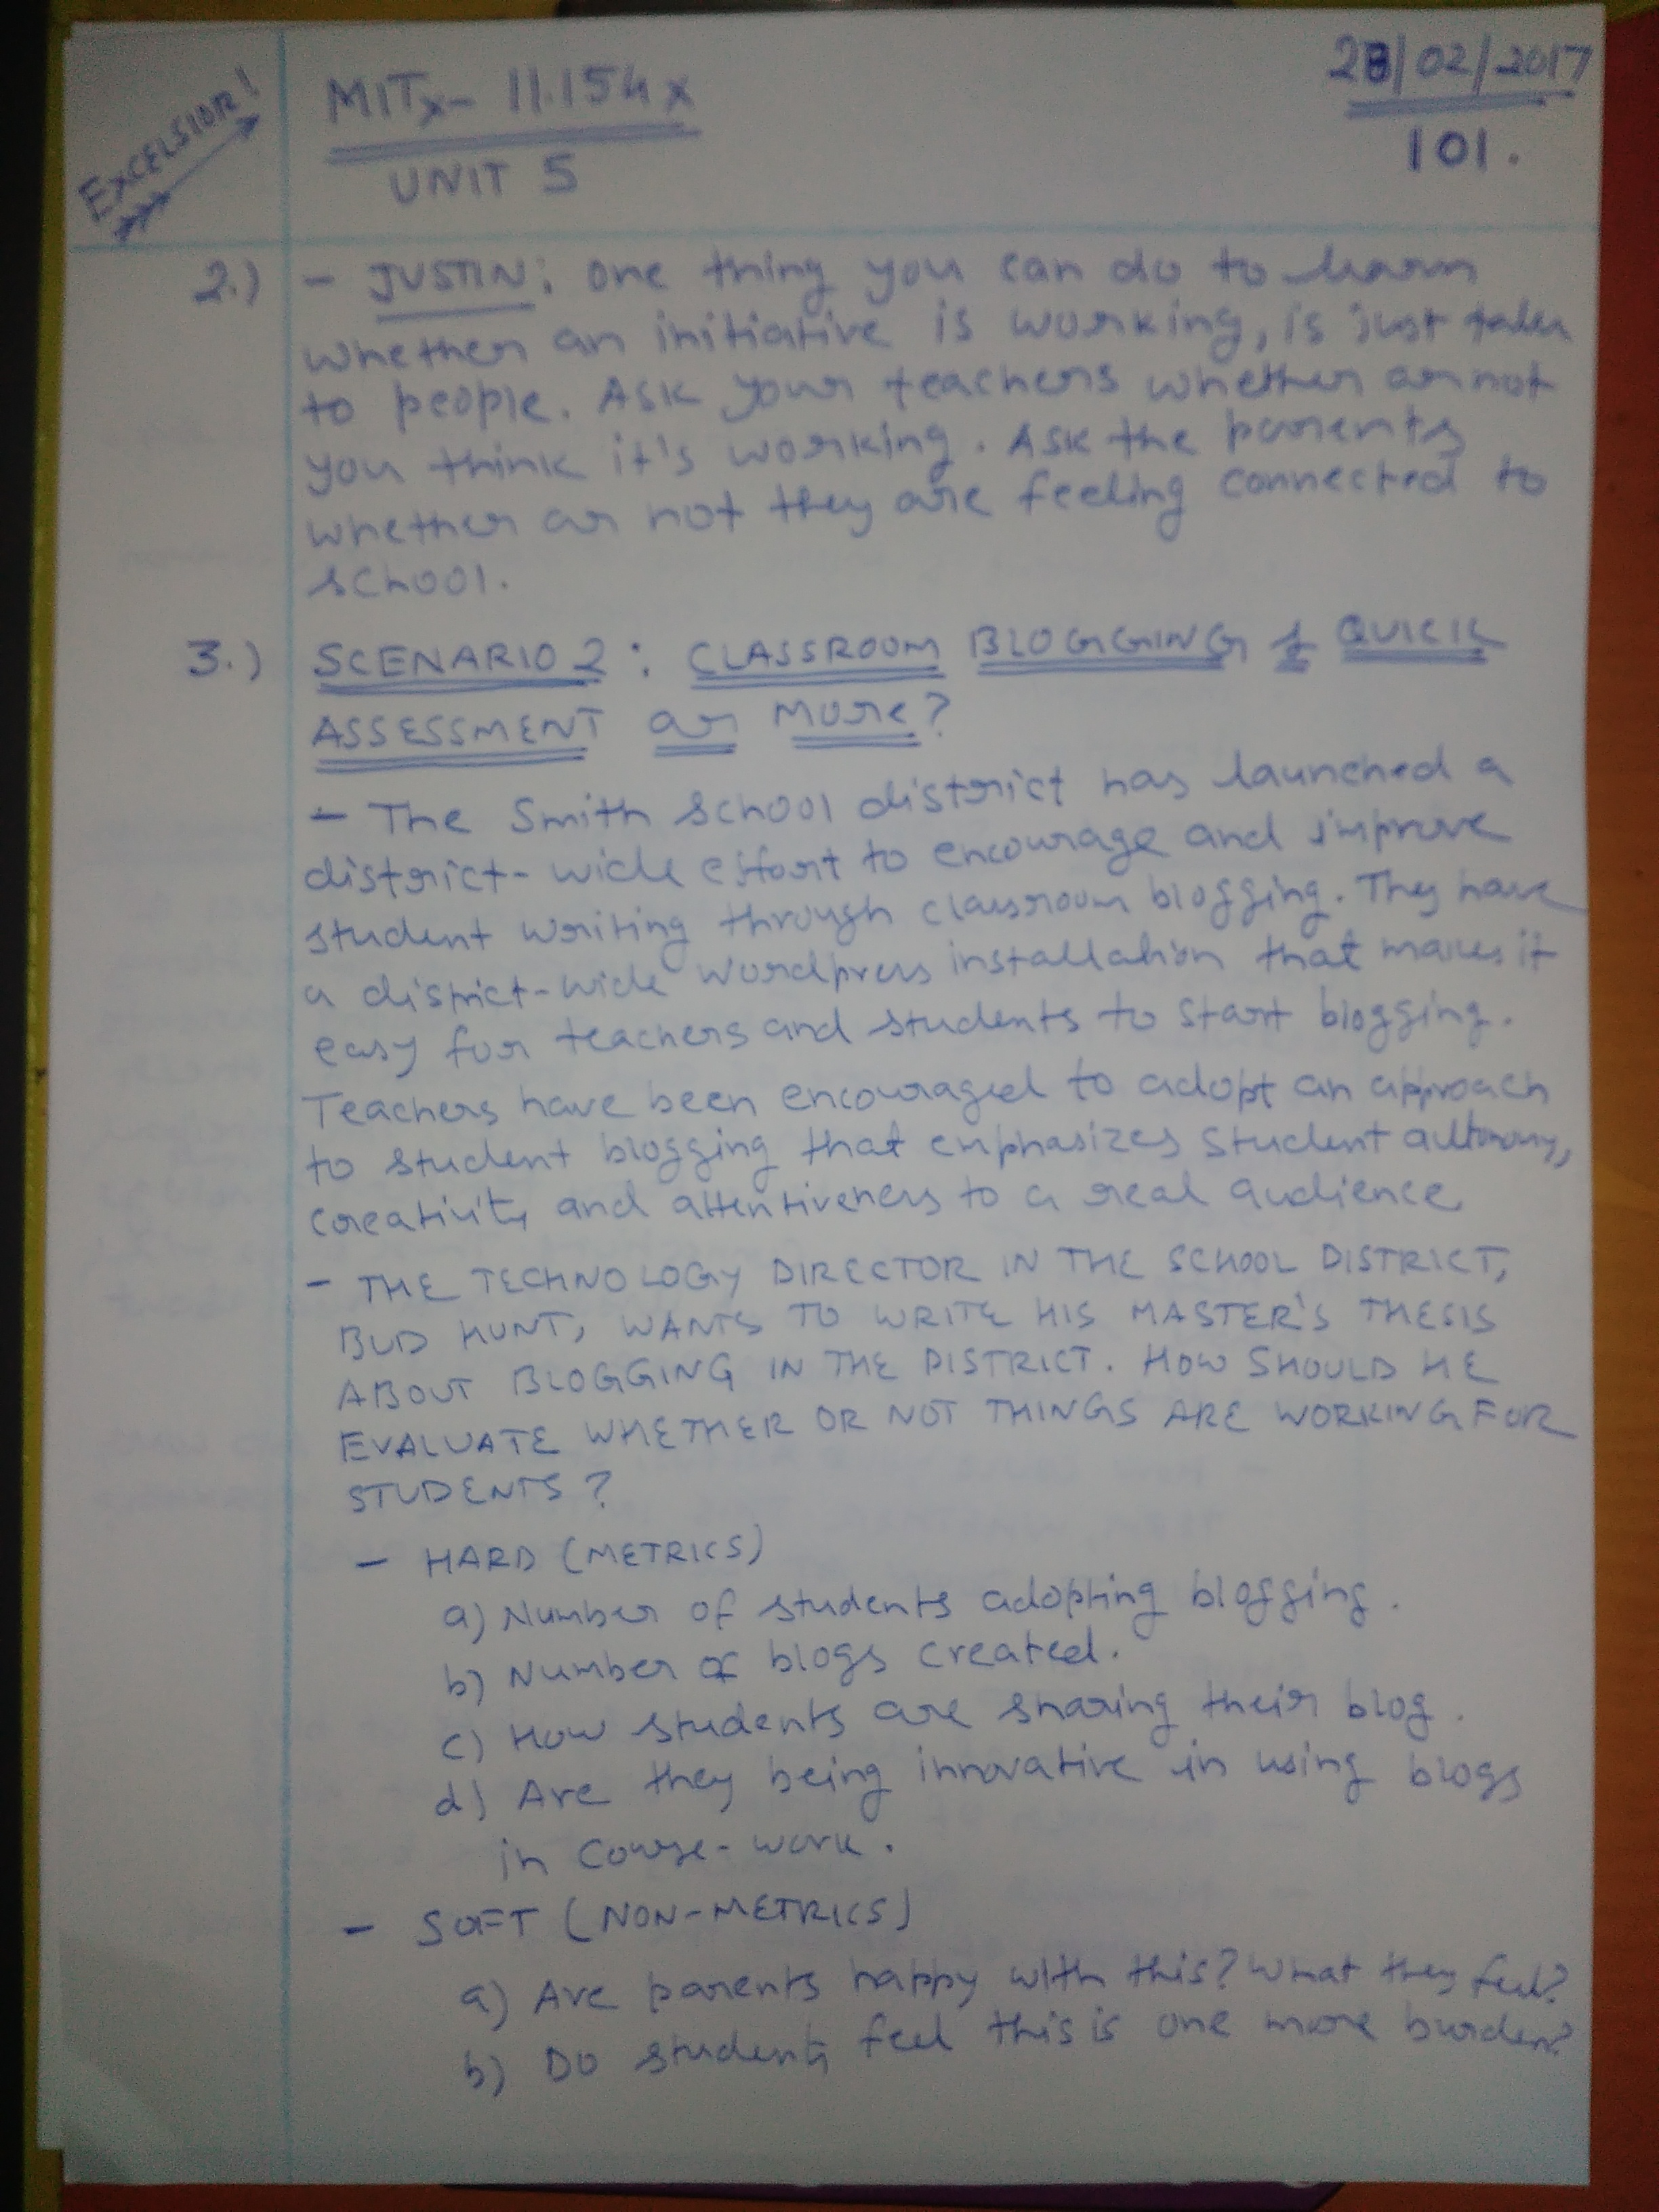 EXCELSIOR!
MITx- 11.154x
UNIT 5
28/02/2017
101.
2.) - JUSTIN: One thing you can do to learn
whether an initiative is working, is just talk
to people. Ask your teachers whether or not
you think it's working. Ask the parents
whether or not they are feeling connected to
school.
3.) SCENARIO 2: CLASSROOM BLOGGING & QUICK
ASSESSMENT or More?
- The Smith School district has launched a
district-wide effort to encourage and improve
student writing through classroom blogging. They have
a district-wide Wordpress installation that makes it
easy for teachers and students to start blogging.
Teachers have been encouraged to adopt an approach
to student blogging that emphasizes student autonomy,
creativity and attentiveness to a real audience
- THE TECHNOLOGY DIRECTOR IN THE SCHOOL DISTRICT,
BUD HUNT, WANTS TO WRITE HIS MASTER'S THESIS
ABOUT BLOGGING IN THE DISTRICT. HOW SHOULD HE
EVALUATE WHETHER OR NOT THINGS ARE WORKING FOR
STUDENTS?
- HARD (METRICS)
a) Number of students adopting blogging.
b) Number of blogs created.
c) How students are sharing their blog.
d) Are they being innovative in using blogs
in course-work.
- SOFT (NON-METRICS)
a) Are parents happy with this? What they feel?
b) Do students feel this is one more burden?